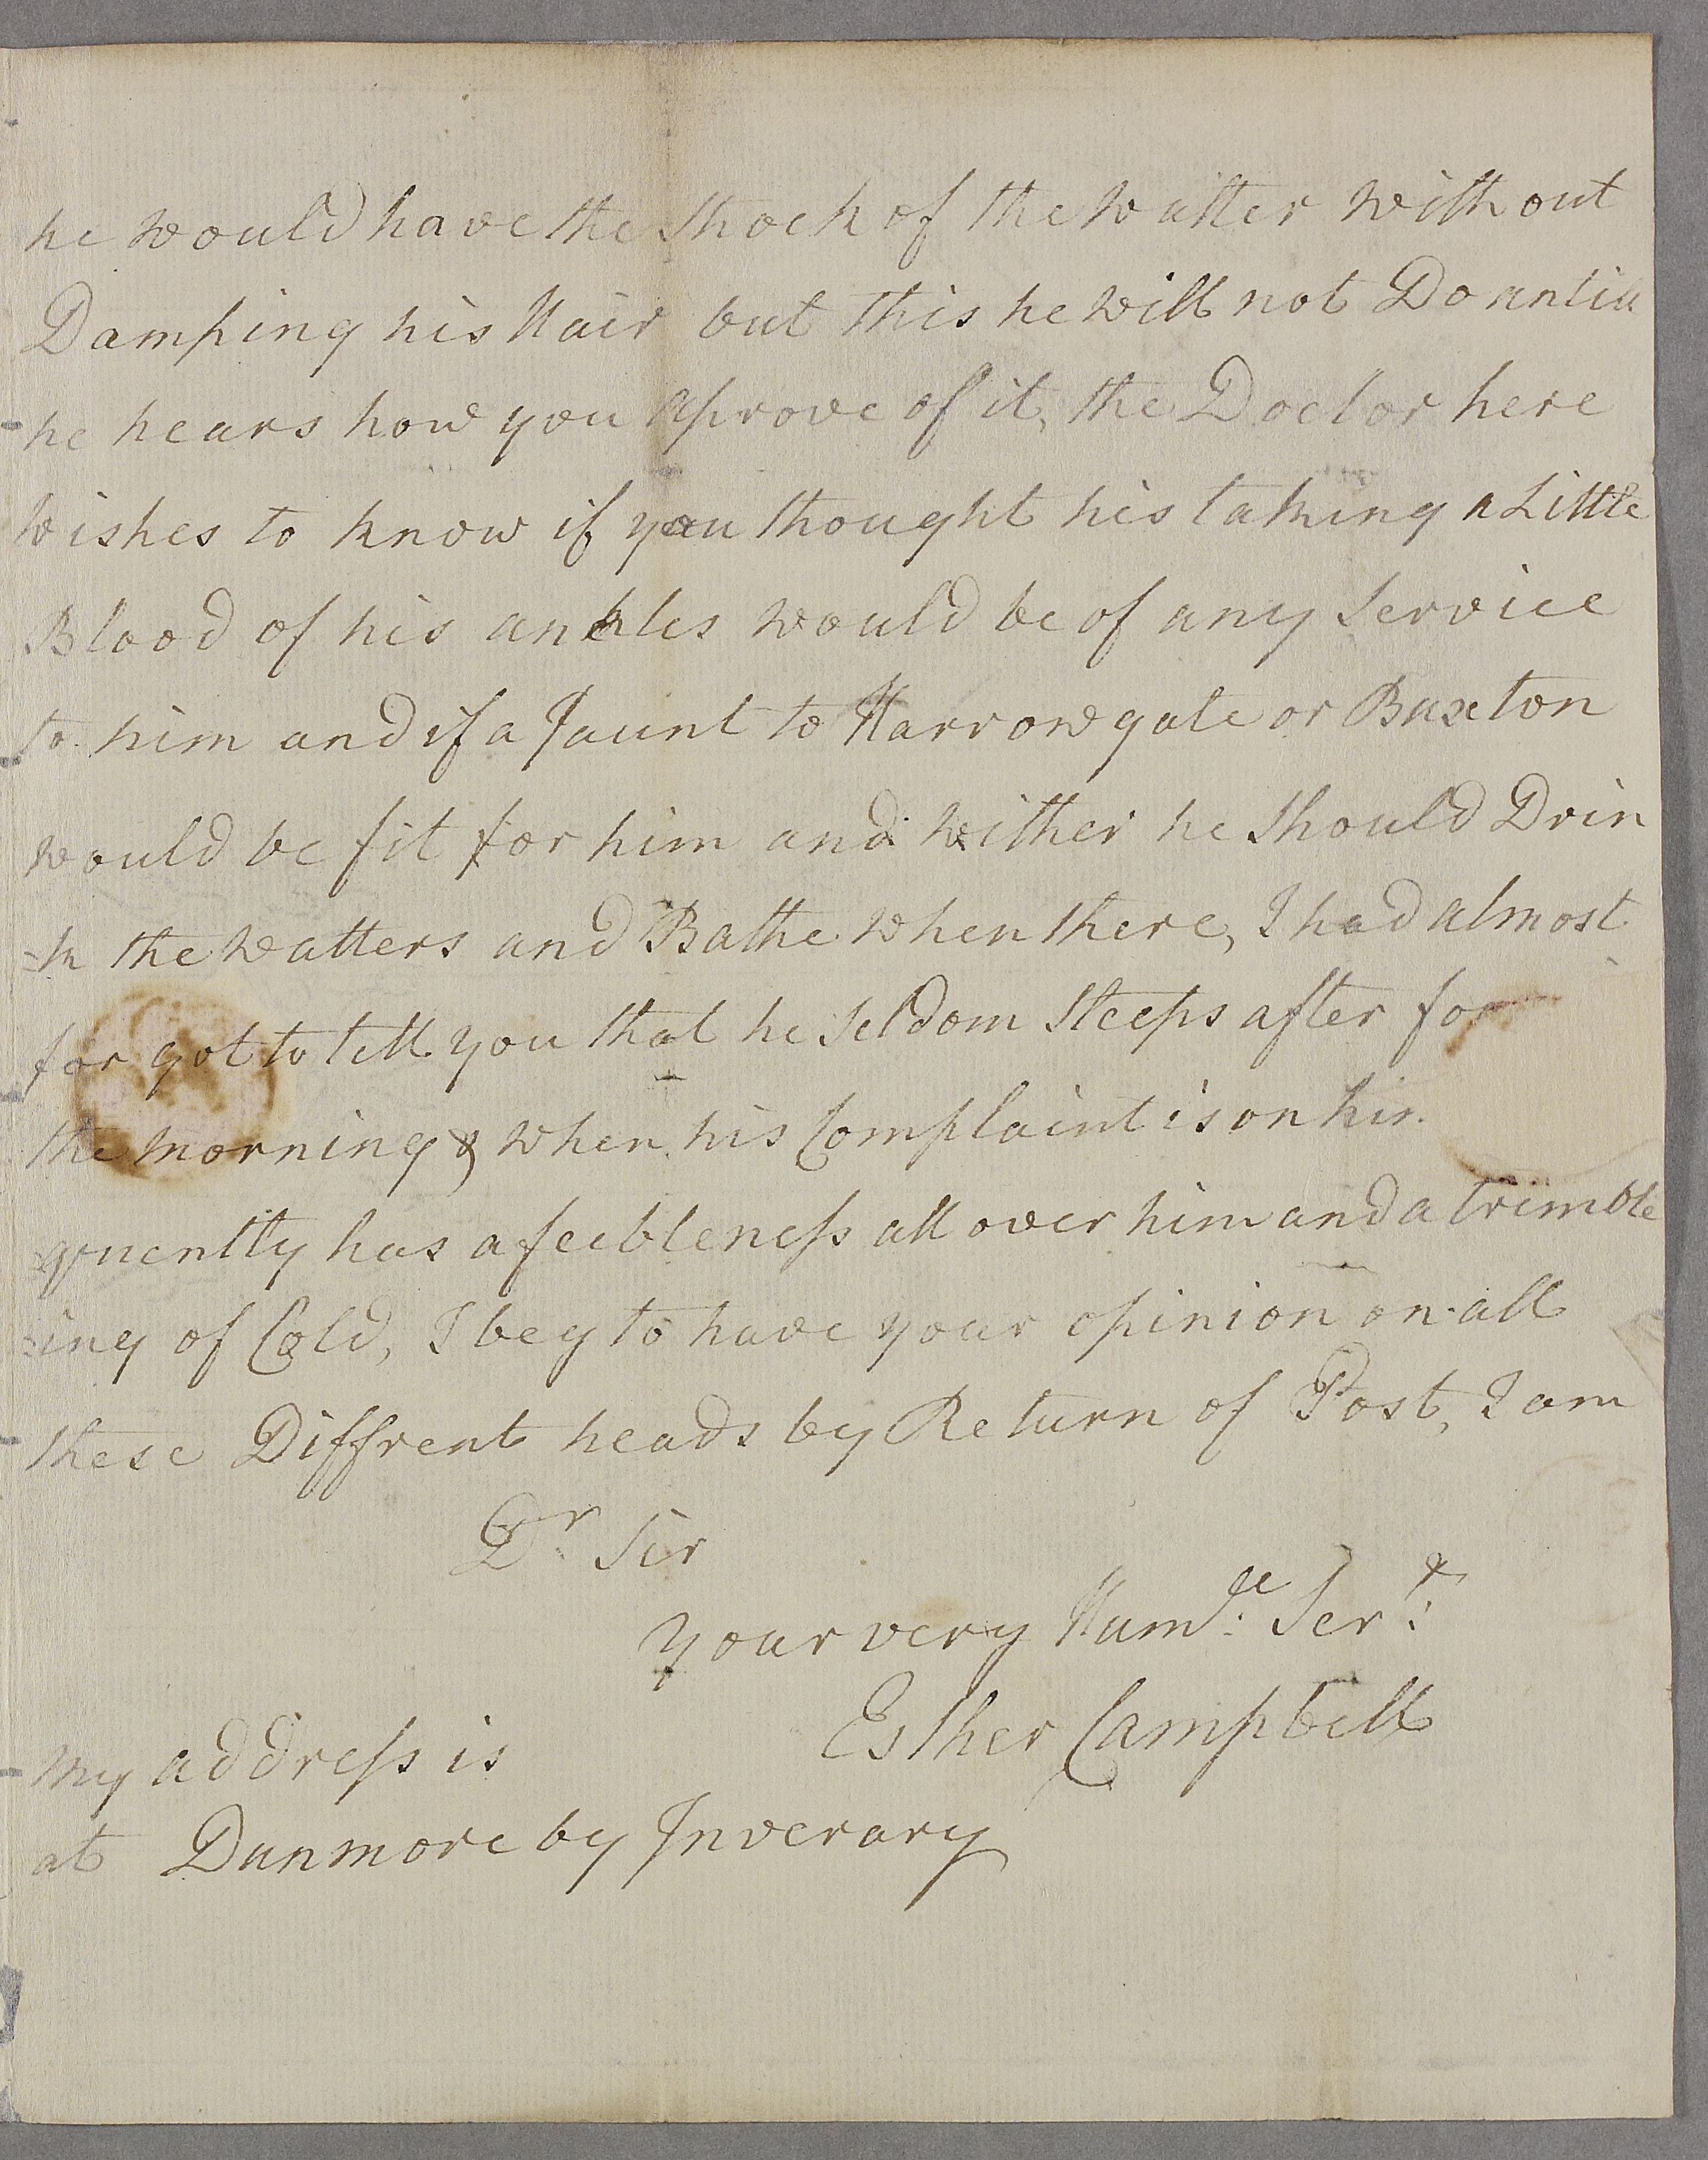 he would have the Shock of the Watter without
Damping his Hair but this he will not Do antill
he hears how you aprove of it, the Doctor here
wishes to know if you thought his taking a Little
Blood of his ankles would be of any Service
to him and if a Jaunt to Harrowgate or Buxton
would be fit for him and wither he Should Drin
=k the Watters and Bathe when there, I had almost
for got to tell you that he seldom Sleeps after for
the morning & when his Complaint is on his
=quently has a feebleness all over him and a trimble
=ing of Cold, I beg to have your opinion on all
these Diffrent heads by Return of Post, I am
Dr Sir
Your very Humble Sert
Esther Campbell
My address is
at Dunmore by Inverary